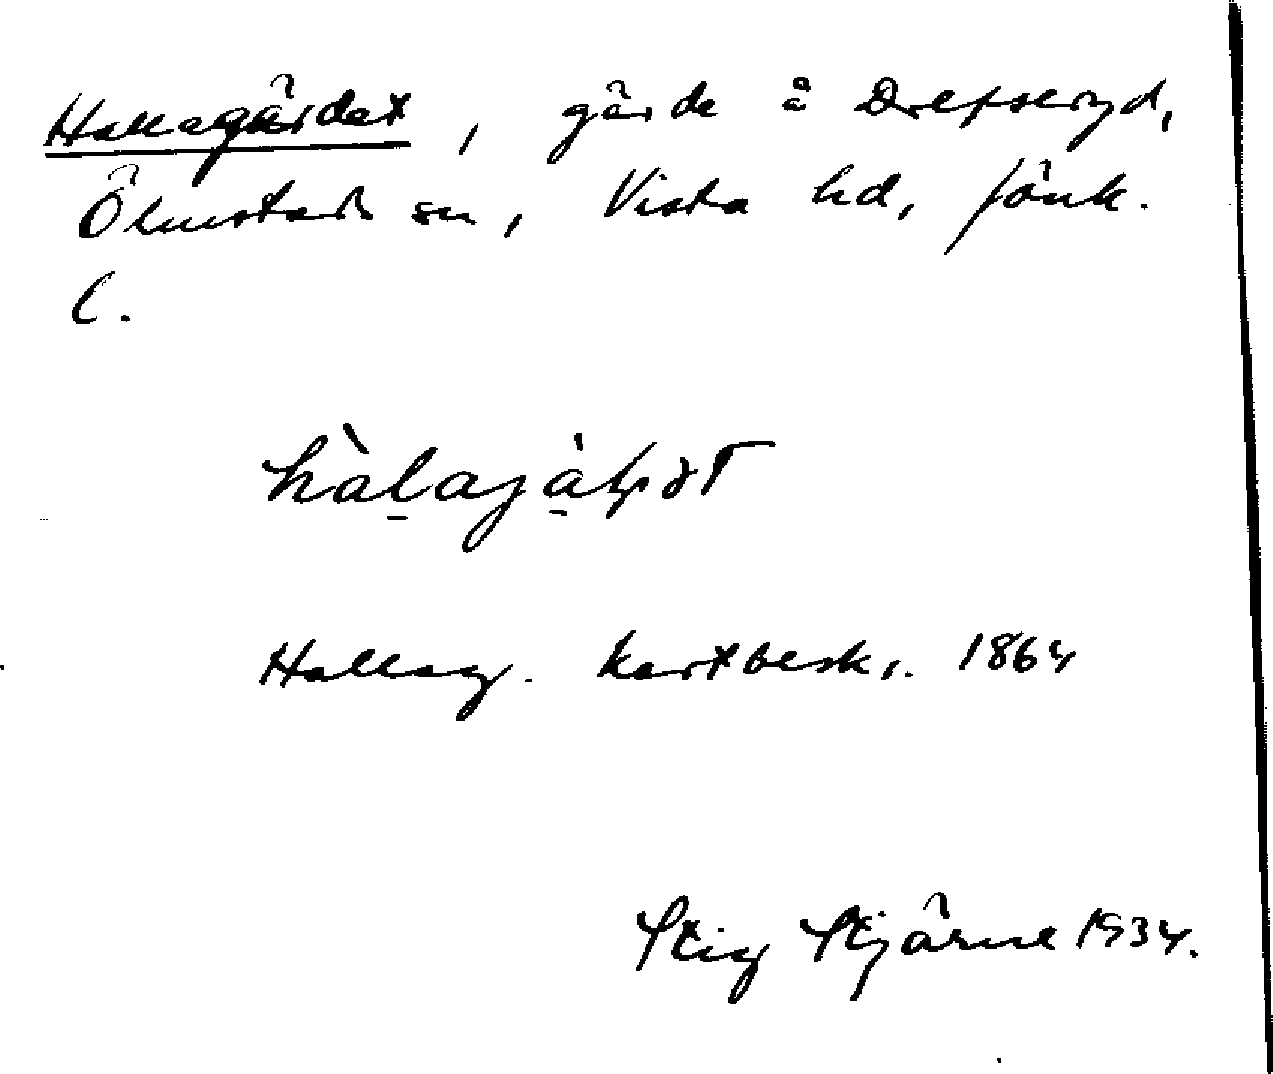 Hallagärdet, gärde å Drefseryd,
Ölmstads sn, Vista hd, Jönk.
l.
Hallag. kartbeskr. 1864
Stig Stjärne 1934.